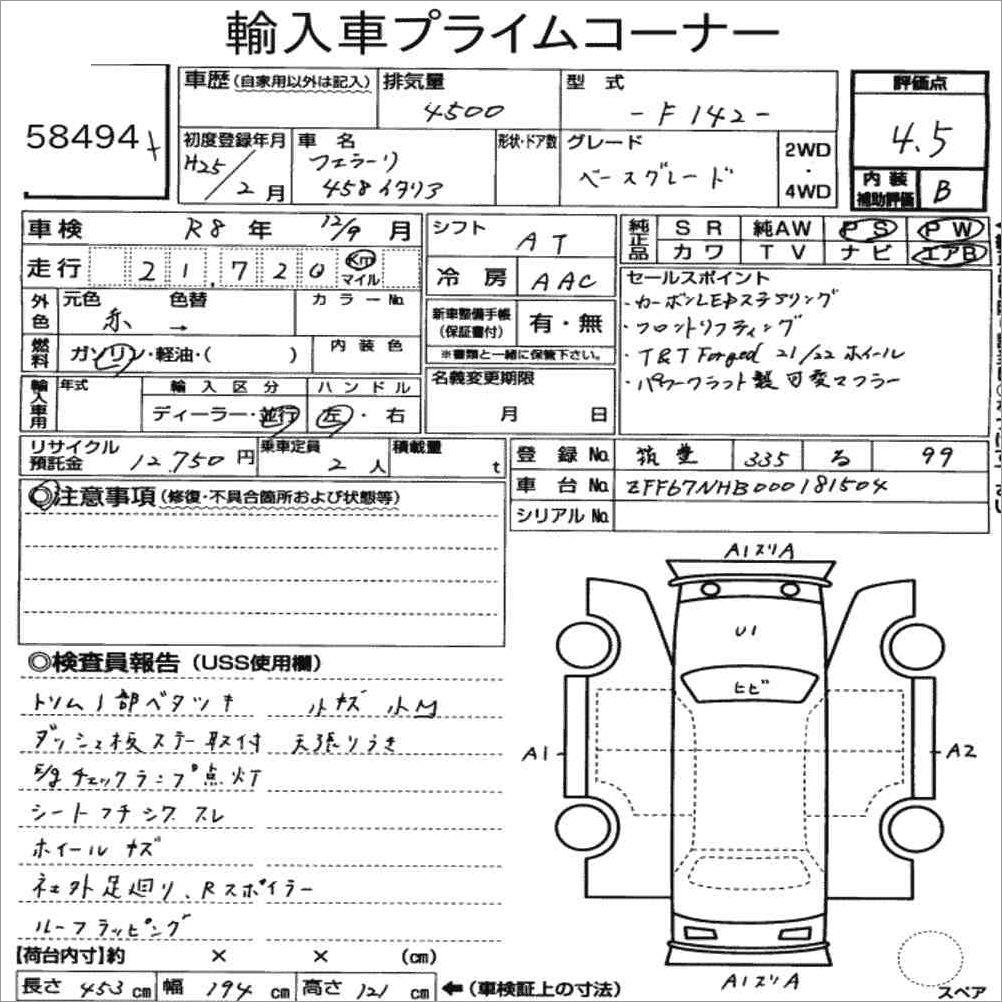 輸入車プライムコーナー
58494
車歴(自家用以外は記入) 排気量 4500 型式 -F142- 評価点 4.5
初度登録年月 H25/2月 車名 フェラーリ 458イタリア 形状・ドア数 グレード ベースグレード 2WD・4WD 内装補助評価 B
車検 R8年 12/9月 シフト AT 純正品 SR 純AW PS PW
走行 21,720 Km マイル 冷房 AAC カワ TV ナビ エアB
外色 元色 赤 色替 → カラーNo. 新車整備手帳(保証書付) 有・無
燃料 ガソリン・軽油・( ) 内装色 ※書類と一緒に保管下さい。
輸入車用 年式 輸入区分 ディーラー・並行 ハンドル 左・右 名義変更期限 月 日
セールスポイント
・カーボンLEDステアリング
・フロントリフティング
・T&T Forged 21/22 ホイール
・パワークラフト製可変マフラー
リサイクル預託金 12,750円 乗車定員 2人 積載量 t
登録No. 筑豊 335 る 99
車台No. ZFF67NHB000181504
シリアルNo.
◎注意事項(修復・不具合箇所および状態等)
◎検査員報告(USS使用欄)
トリム1部ベタツキ 小キズ 小M
ダッシュ板ステー取付 天張りうき
E/gチェックランプ点灯
シートフチシワ スレ
ホイールキズ
社外足廻り、Rスポイラー
ルーフラッピング
A1ズリA
U1
ヒビ
A1
A2
A1ズリA
スペア
【荷台内寸】約 × × (cm)
長さ 453 cm 幅 194 cm 高さ 121 cm ←(車検証上の寸法)